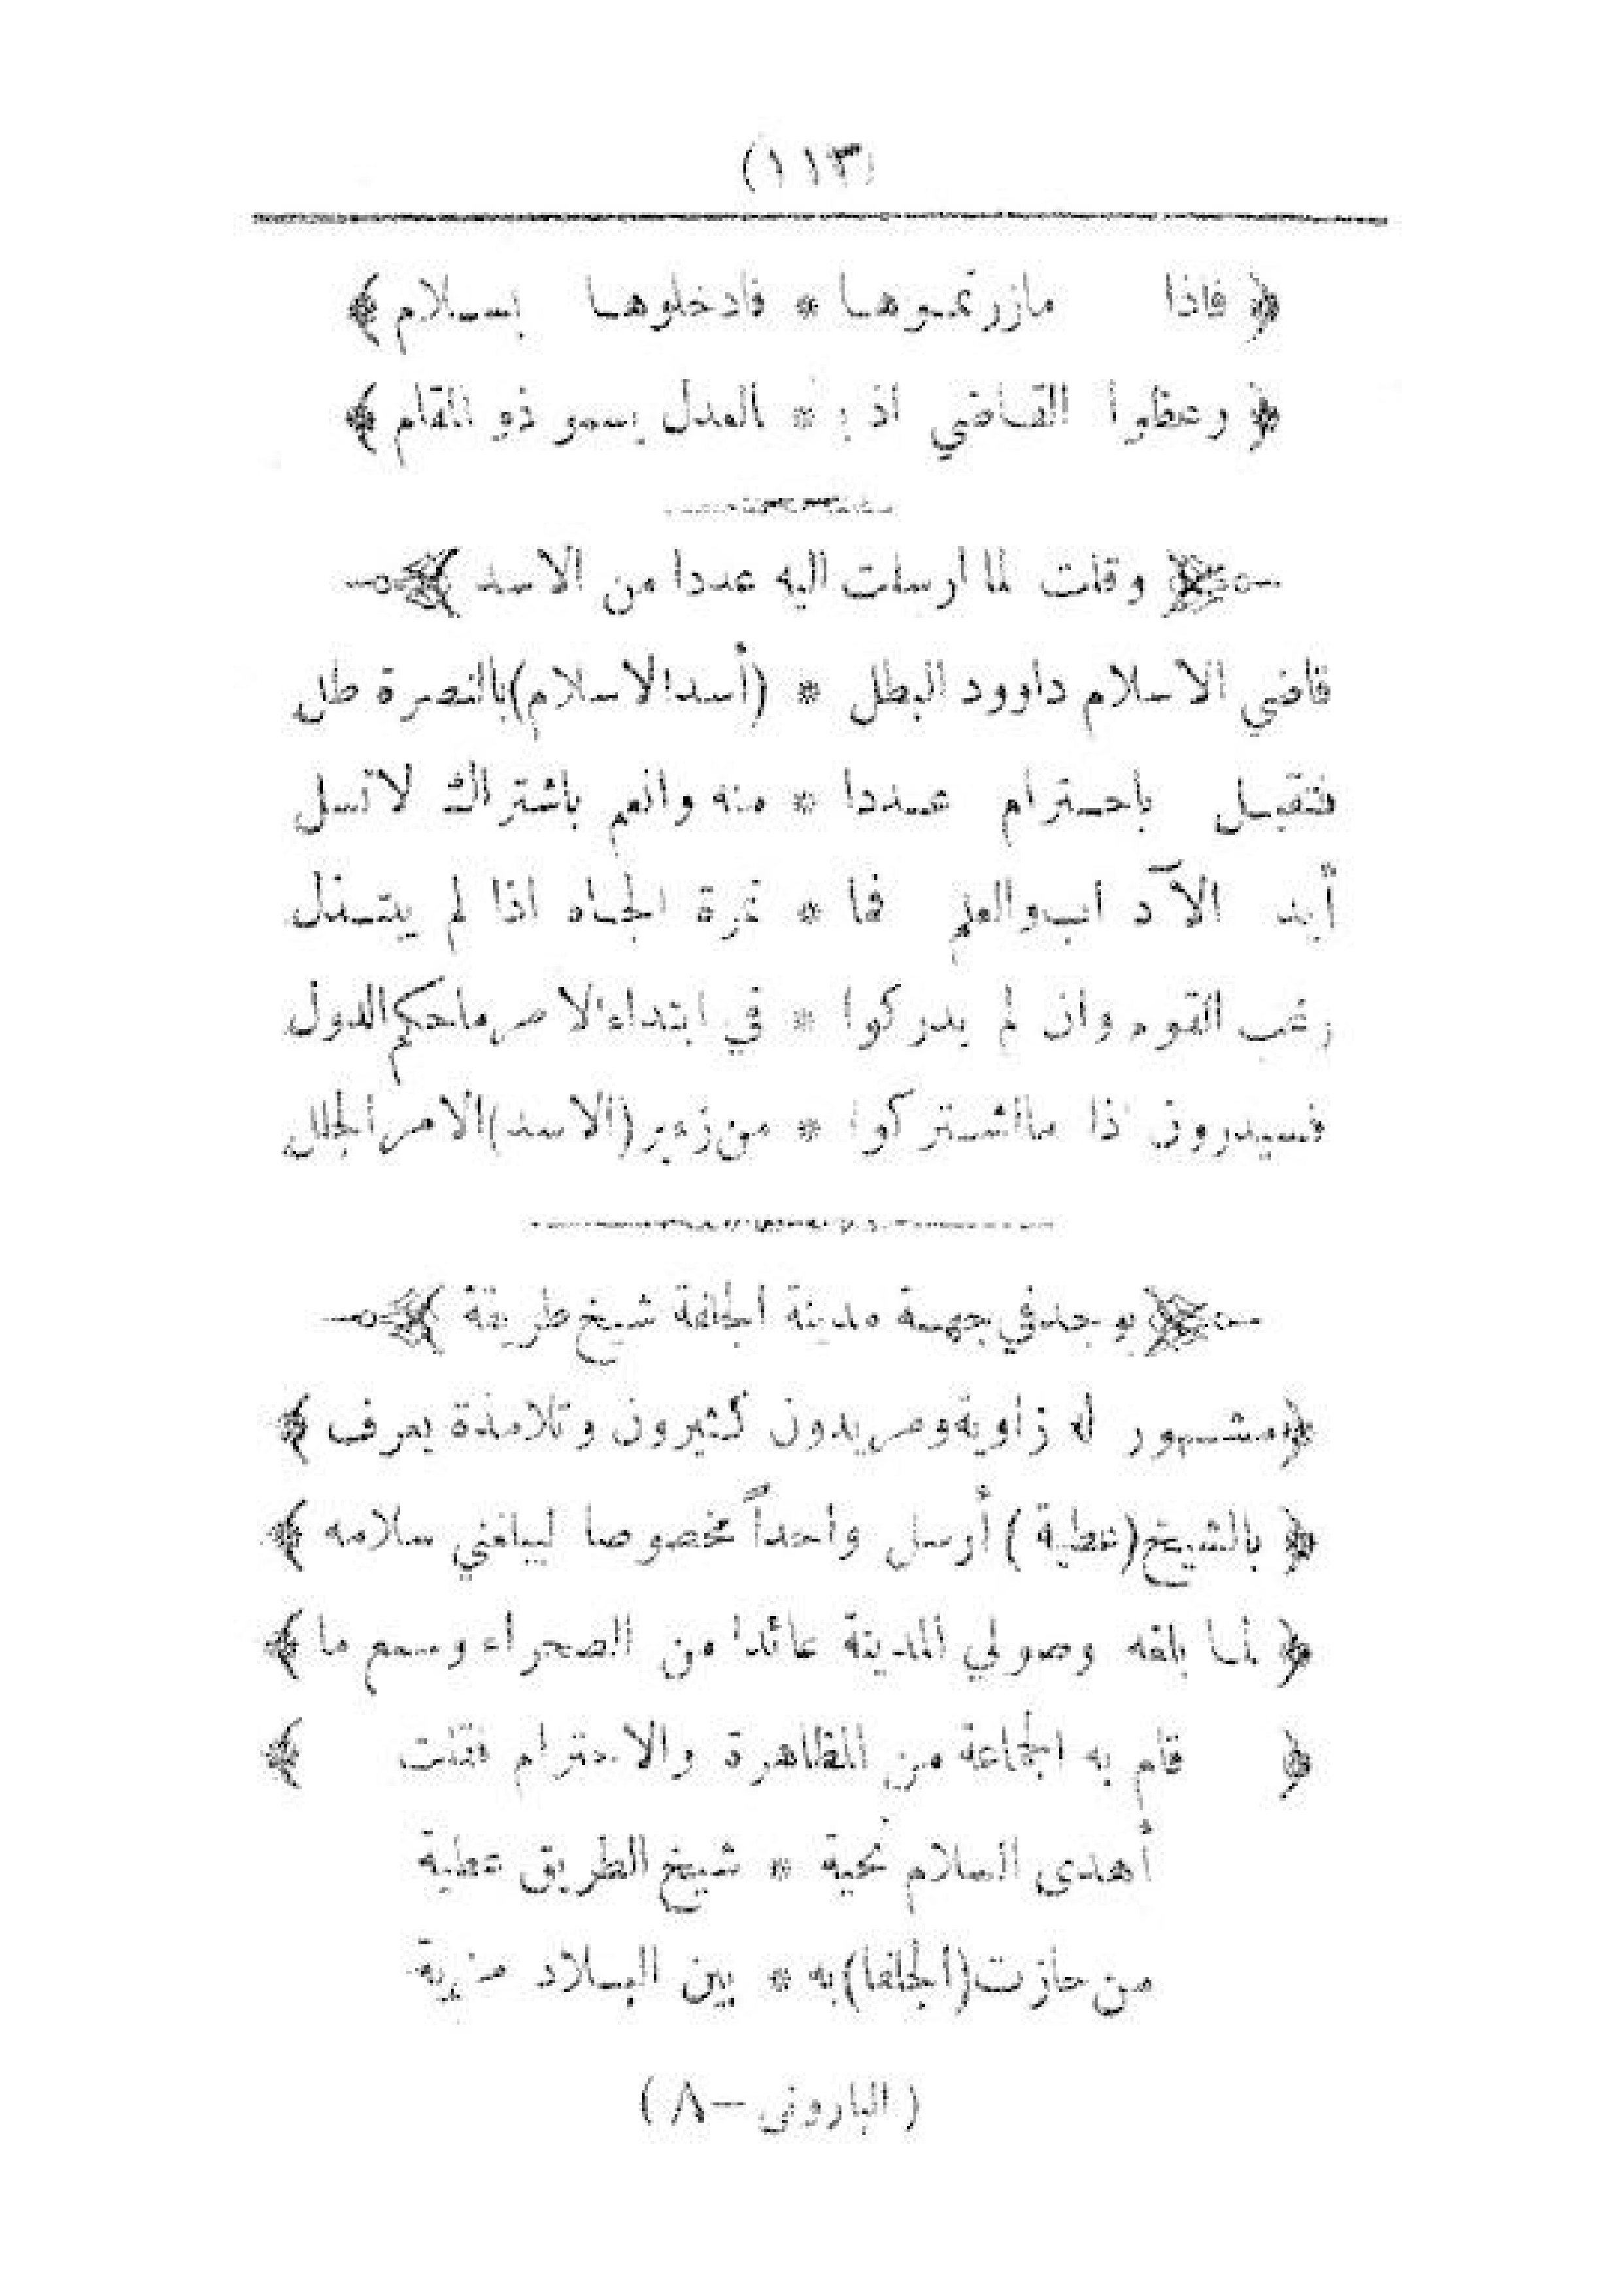 (١١٣)
﴿ فاذا مازرتموها * فادخلوها بسلام ﴾
﴿ وعظوا القاضي اذ * العدل يسمو ذو المقام ﴾
﴿ وقلت لما ارسلت اليه عددا من الاسد ﴾
قاضي الاسلام داوود البطل * (أسد الاسلام) بالنصرة طل
فتقبل باحترام عددا * منه وانعم باشتراك لاتسل
أيد الآداب والعلم فما * ثمرة الجاه اذا لم يتسذل
رغب القوم وان لم يدركوا * في ابتداء الامر ماحكم الدول
فسيدرون اذا مااشتركوا * من زءير (الاسد) الامر الجلل
﴿ يوجد في جهة مدينة الجلفة شيخ طريقة ﴾
﴿ مشهور له زاوية ومريدون كثيرون وتلامذة يعرف ﴾
﴿ بالشيخ (عطية) أرسل واحداً مخصوصا ليبلغني سلامه ﴾
﴿ لما بلغه وصولي المدينة عائدا من الصحراء وسمع ما ﴾
﴿ قام به الجماعة من المظاهرة والاحترام فقلت ﴾
أهدى السلام تحية * شيخ الطريق عطية
من حازت (الجلفا) به * بين البلاد مزية
(الباروني – ٨)